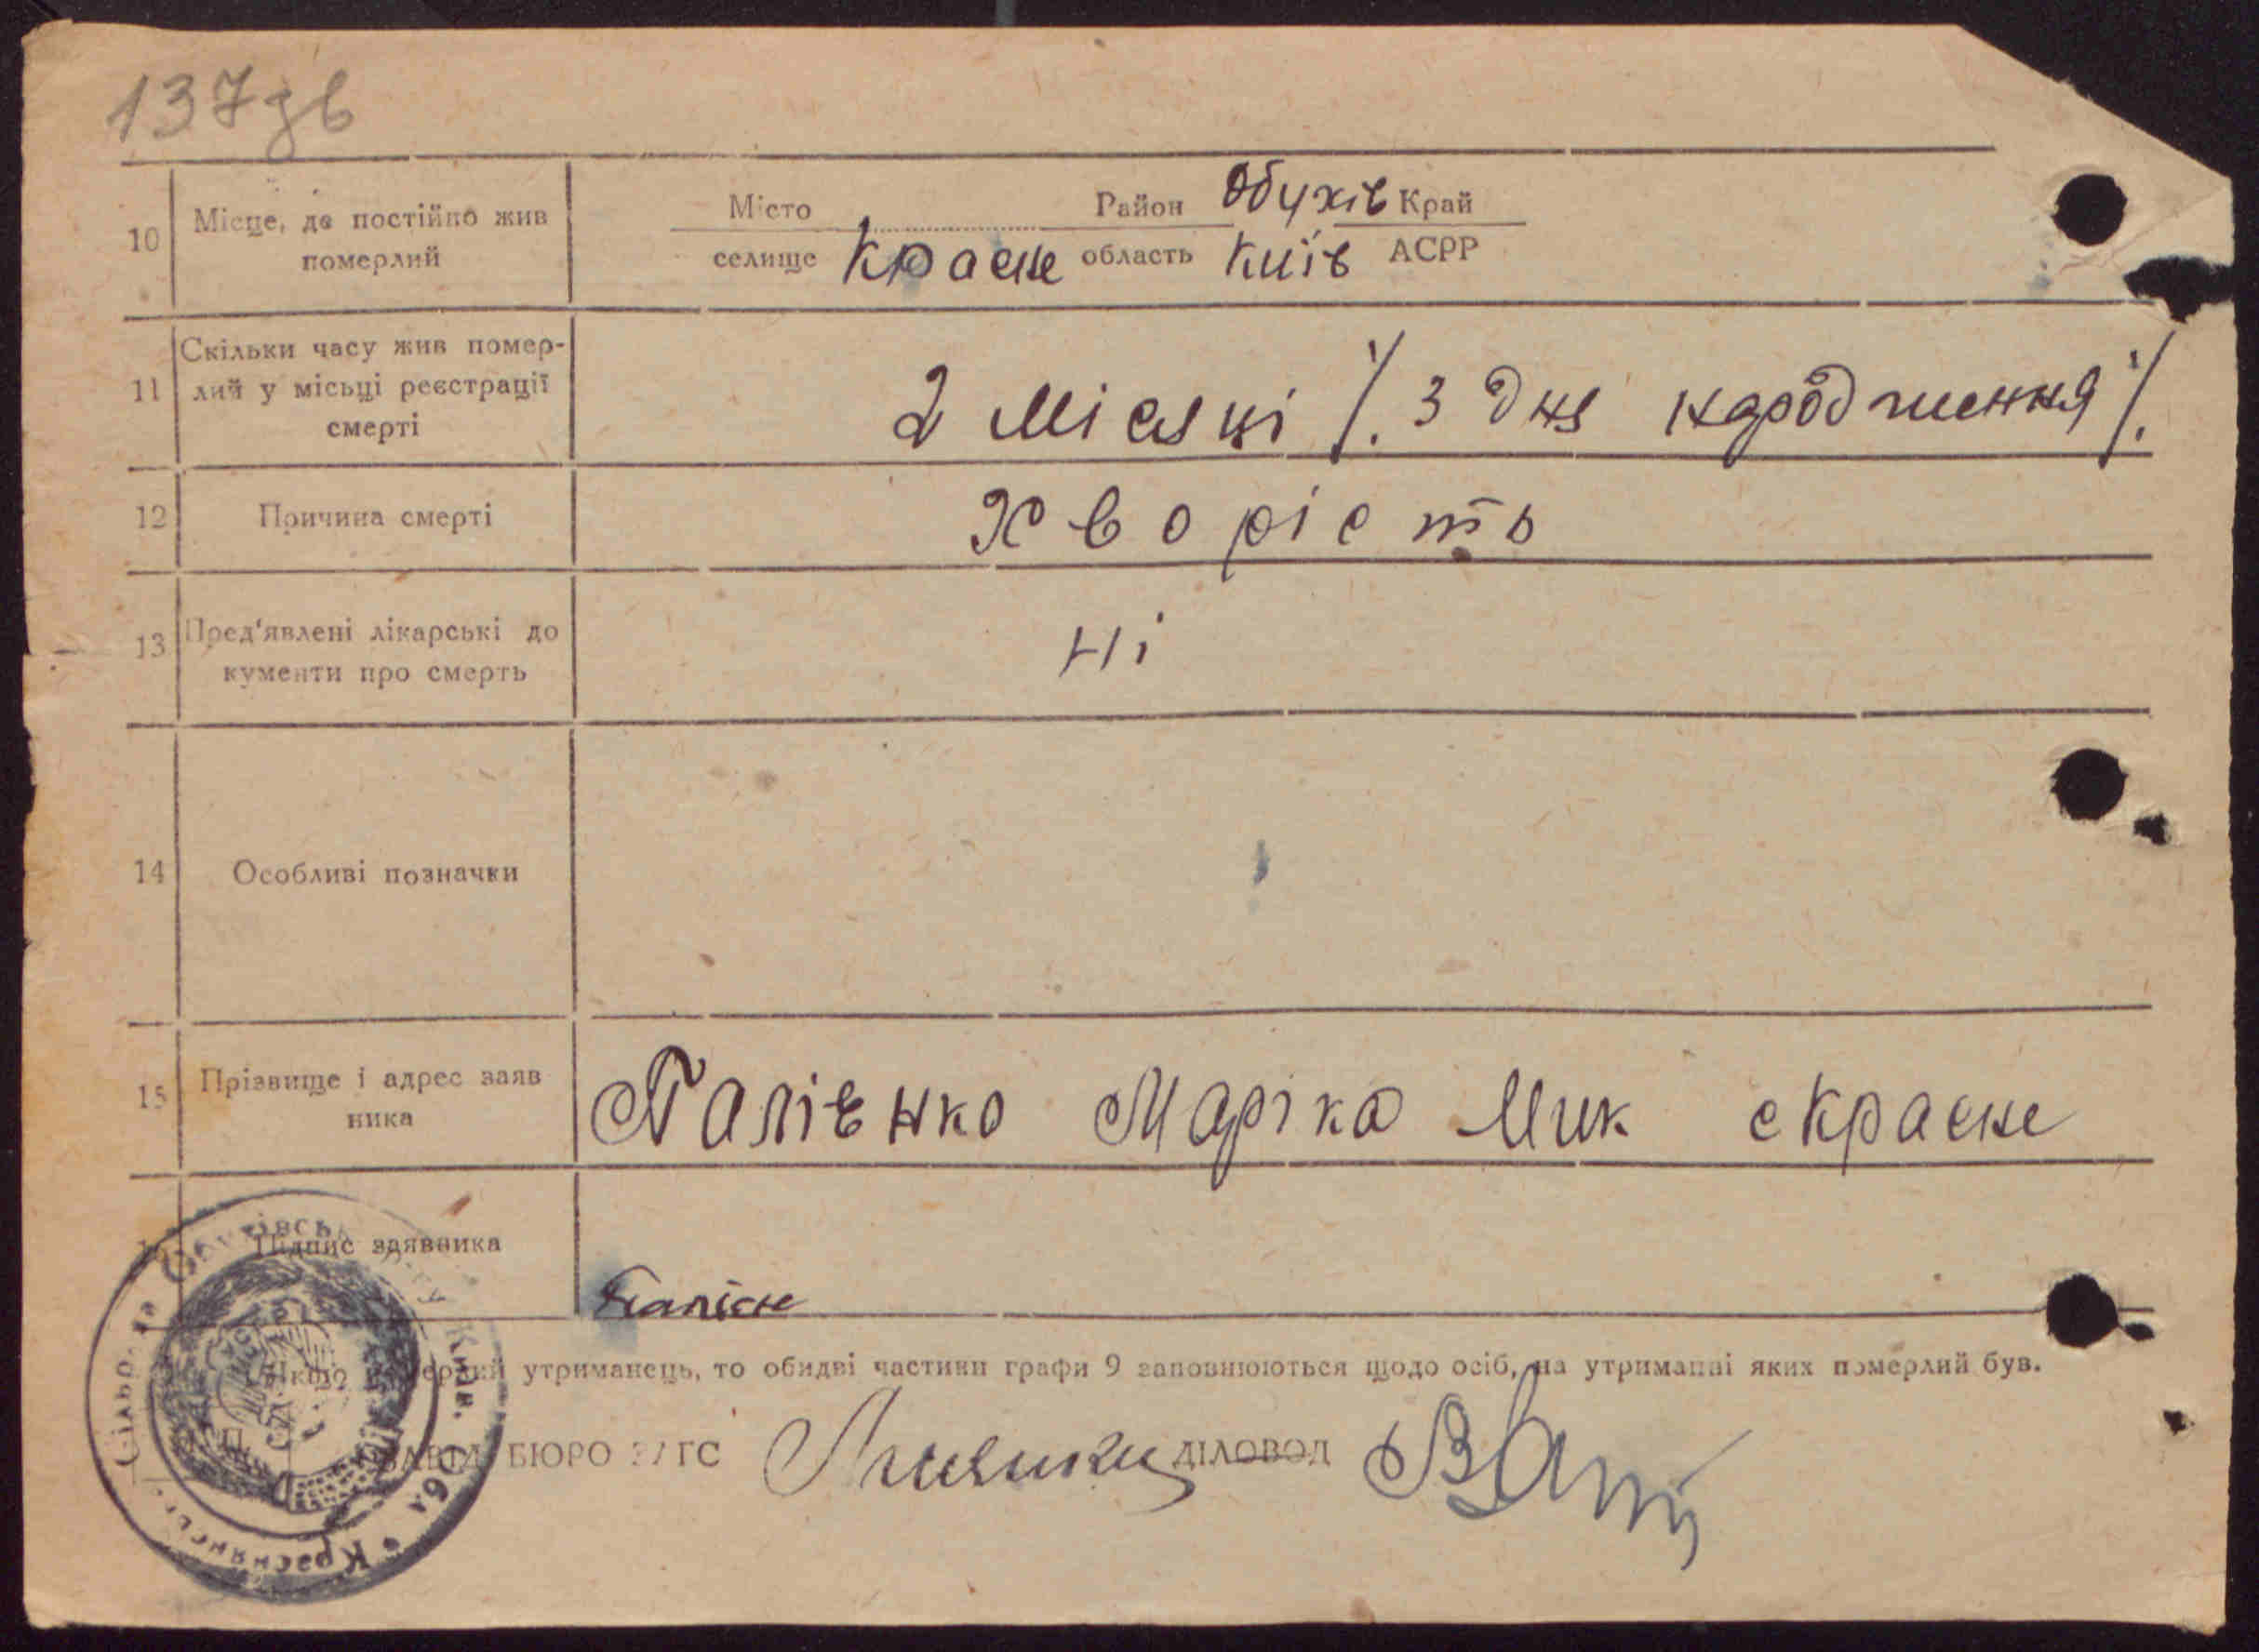 137 зв
10 Місце, де постійно жив померлий
Місто Район Обухів Край
селище Красне область Київ АСРР
11 Скільки часу жив помер-
лий у місьці реєстрації
смерті
2 місяці /. з дня народження /.
12 Причина смерті
Хворість
13 Пред'явлені лікарські до
кументи про смерть
Ні
14 Особливі позначки
15 Прізвище і адрес заяв
ника
Палієнко Марїка Мик с Красне
Підпис заявника
утриманець, то обидві частини графи 9 заповнюються щодо осіб, на утриманні яких померлий був.
БЮРО ЗАГС
ДІЛОВОД